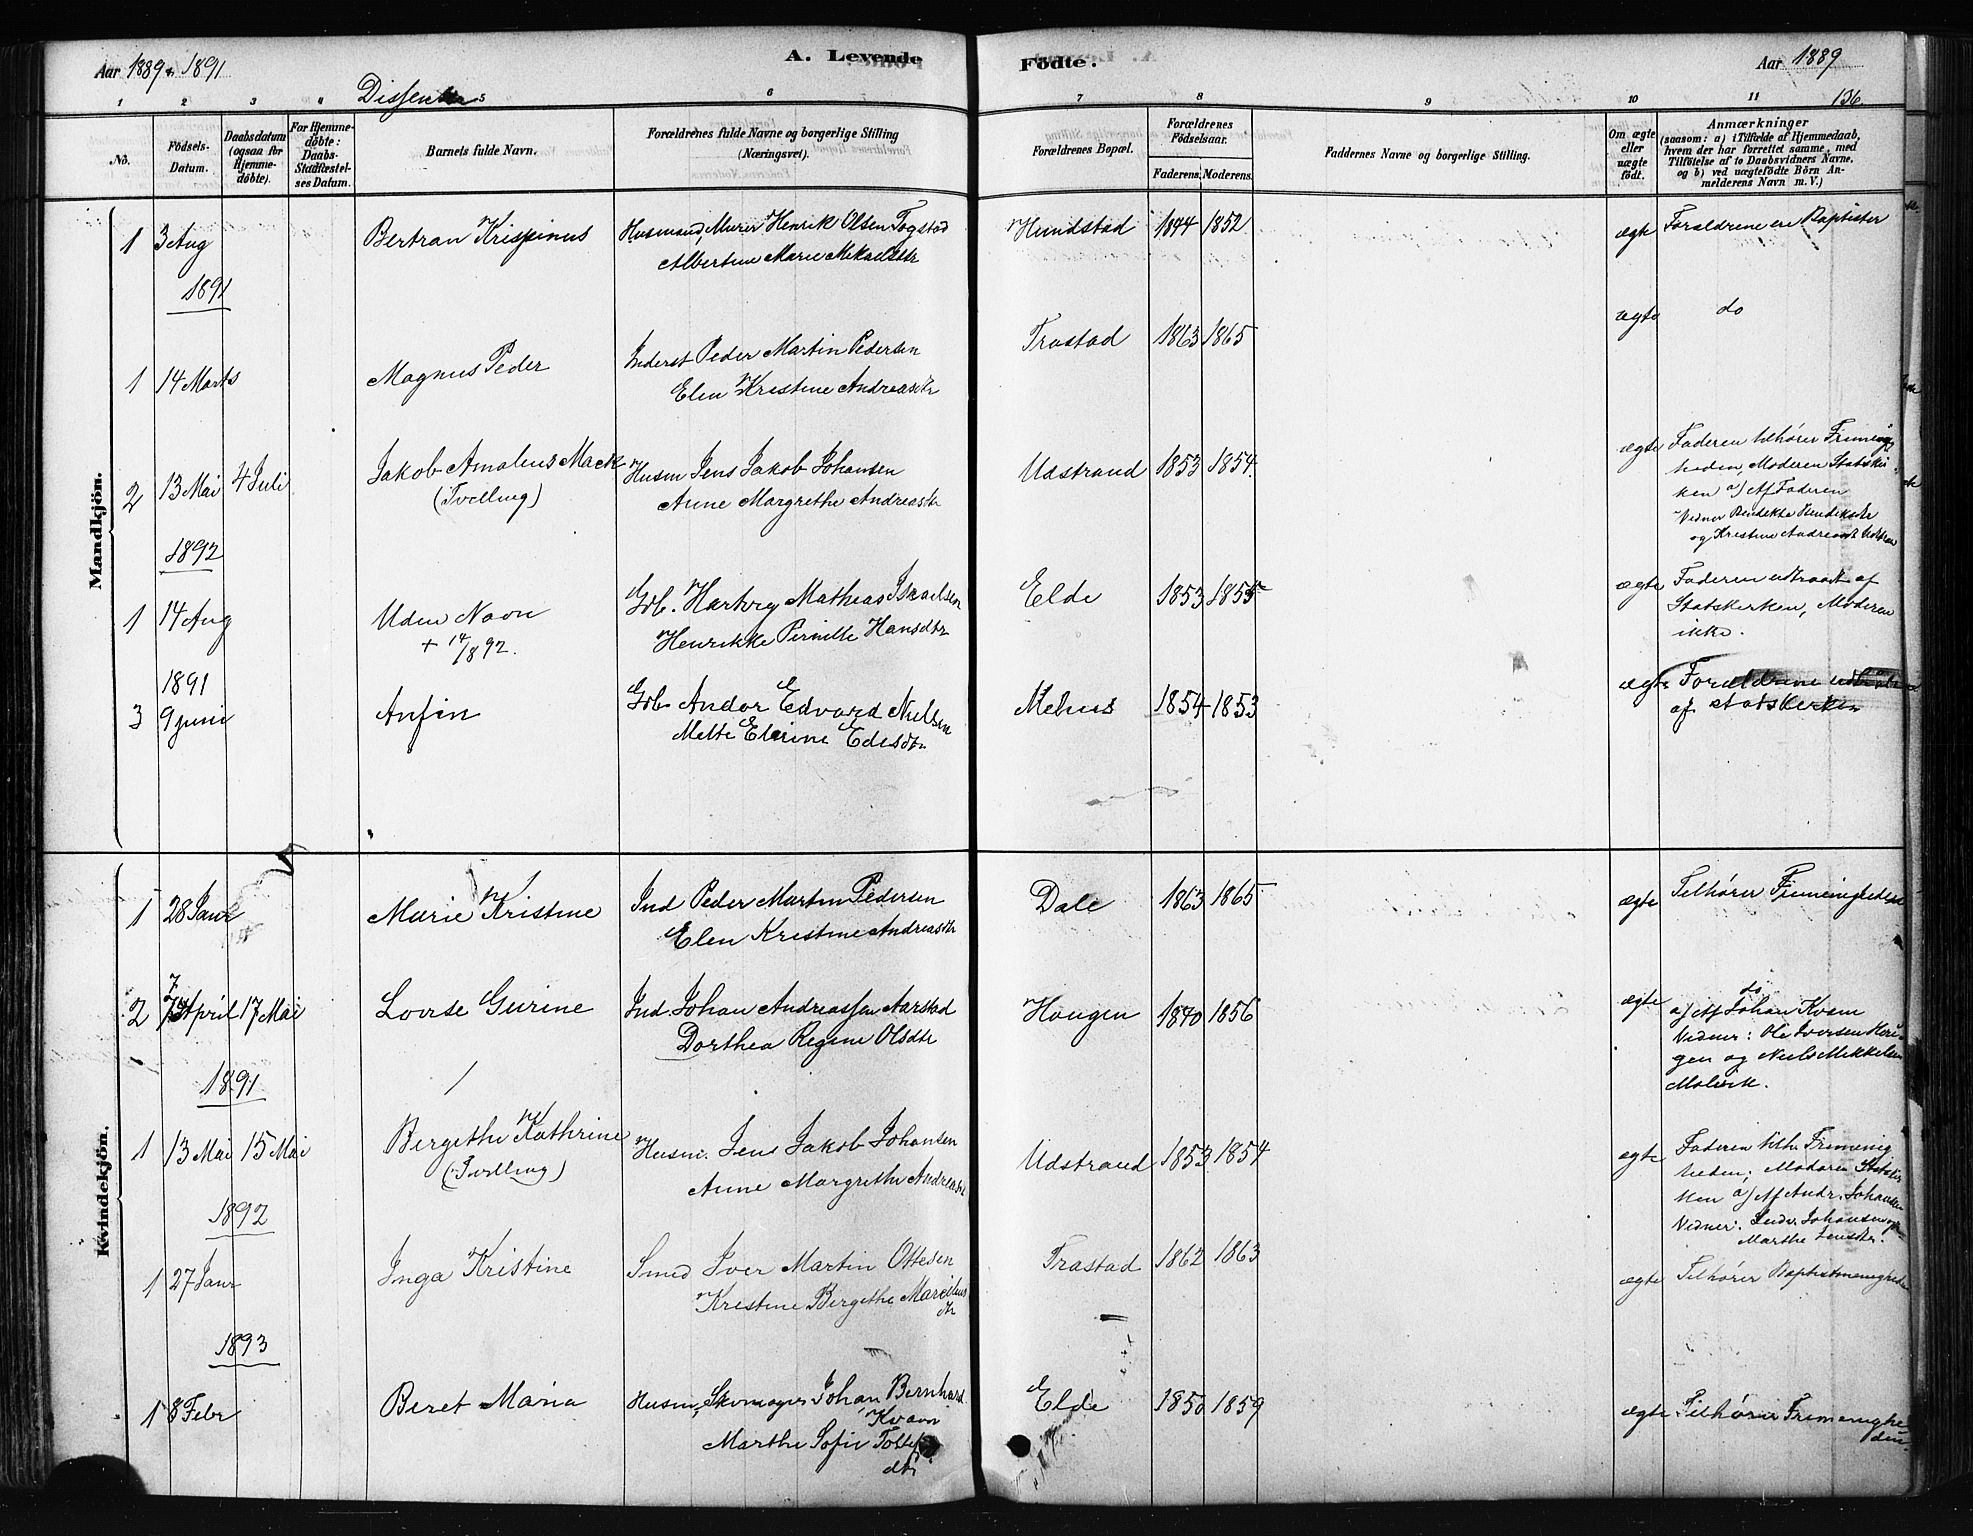 Aar 1889 & 1891
A. Levende Födte.
Aar 1889
Dissenter
136.
1 2 3 4 5 6 7 8 9 10 11
No.
Födsels-Datum.
Daabsdatum (ogsaa for Hjemme-döbte).
For Hjemme-döbte: Daabs-Stadfæstel-ses Datum.
Barnets fulde Navn.
Forældrenes fulde Navne og borgerlige Stilling (Næringsvei).
Forældrenes Bopæl.
Forældrenes Födselsaar.
Faderens. Moderens.
Faddernes Navne og borgerlige Stilling.
Om ægte eller uægte födt.
Anmærkninger
(saasom: a) i Tilfælde af Hjemmedaab,
hvem der har forrettet samme, med
Tilföielse af to Daabsvidners Navne,
og b) ved uægtefödte Börn An-
melderens Navn m. V.)
Mandkjön.
1 3 Aug Bertran Krispinus Husmand, Murer Henrik Olsen Fogstad Hundstad 1844 1852 ægte Forældrene ere Baptister
Albertine Marie Mikaelsdtr
1891
1 14 Marts Magnus Peder Inderst Peder Martin Pedersen Trastad 1863 1865 ægte do
Elen Kristine Andreasdtr
2 13 Mai 4 Juli Jakob Amaleus Mack Husm Jens Jakob Johansen Udstrand 1853 1854 ægte Faderen tilhører Frimenig
(Tvilling) Anne Margrethe Andreasdtr heden, Moderen Statskir
ken a) Af Faderen
Vidner Bendikte Bendiksdtr
og Kristine Andreasdt
1892
1 14 Aug Uden Navn Gdb. Hartvig Mathias Israelsen Elde 1853 1855 ægte Faderen udtraadt af
+ 14/8 92. Henrikke Pernille Hansdtr Statskirken, Moderen
ikke.
1891
3 9 juni Anfin Gdb Andor Edvard Nielsen Mehus 1854 1853 ægte Forældrene
Mette Elerine Edisdtr af statskirken
Kvindekjön.
1 28 Janr Marie Kristine Ind Peder Martin Pedersen Dale 1863 1865 ægte Tilhører Frimenigheden
Elen Kristine Andreasdtr
2 7 April 17 Mai Lovise Gurine Ind Johan Andreassen Aarstad Haugen 1840 1856 ægte do
Dorthea Regine Olsdtr a) Af Johan Kvam
Vidner: Ole Iversen Hau-
gen og Niels Mikkelsen
Molvik.
1891
1 13 Mai 15 Mai Bergithe Kathrine Husm. Jens Jakob Johansen Udstrand 1853 1854 ægte Faderen tilh. Frimenig
(Tvilling) Anne Margrethe Andreasdtr heden; Moderen Statskir
ken a) Af Andr. Johansen
Vidner: Peder Johansen og
Marthe Jensdtr.
1892
1 27 Janr Inga Kristine Smed Iver Martin Ottesen Trastad 1862 1863 ægte Tilhører Baptistmenigheden
Kristine Bergithe Marelius
dtr
1893
1 8 Febr Beret Maria Husm, Skomager Johan Bernhard Elde 1850 1859 ægte Tilhører Frimenighe
Kvavn den.
Marthe Sofie Tollefs
dtr